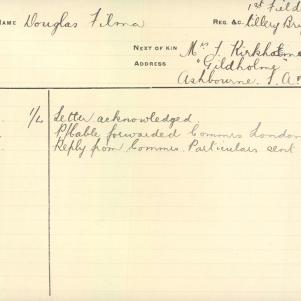 1st Field
NAME Douglas Filma REG. &c. tillery Br
NEXT OF KIN Mrs J. Kirkholme
ADDRESS "Gildholme"
Ashbourne. S. A
1/L Letter acknowledged
P/Cable forwarded Commrs London
Reply from Commrs. Particulars sent